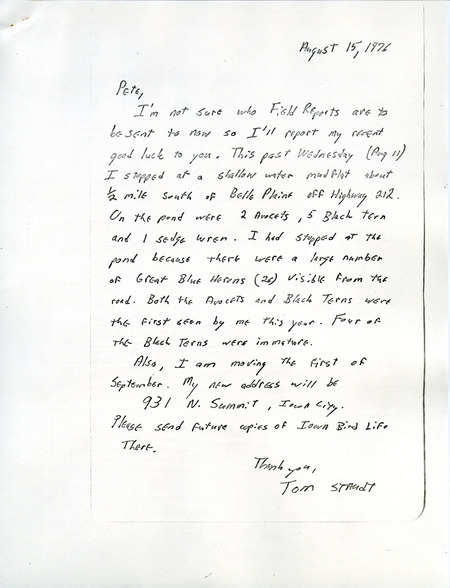 August 15, 1976
Pete,
I'm not sure who Field Reports are to
be sent to now so I'll report my recent
good luck to you. This past Wednesday (Aug 11)
I stopped at a shallow water mudflat about
½ mile south of Belle Plaine off Highway 212.
On the pond were 2 Avocets, 5 Black tern
and 1 sedge wren. I had stopped at the
pond because there were a large number
of Great Blue Herons (26) visible from the
road. Both the Avocets and Black Terns were
the first seen by me this year. Four of
the Black Terns were immature.
Also, I am moving the first of
September. My new address will be
931 N. Summit, Iowa City.
Please send future copies of Iowa Bird Life
There.
Thank you,
Tom Staudt